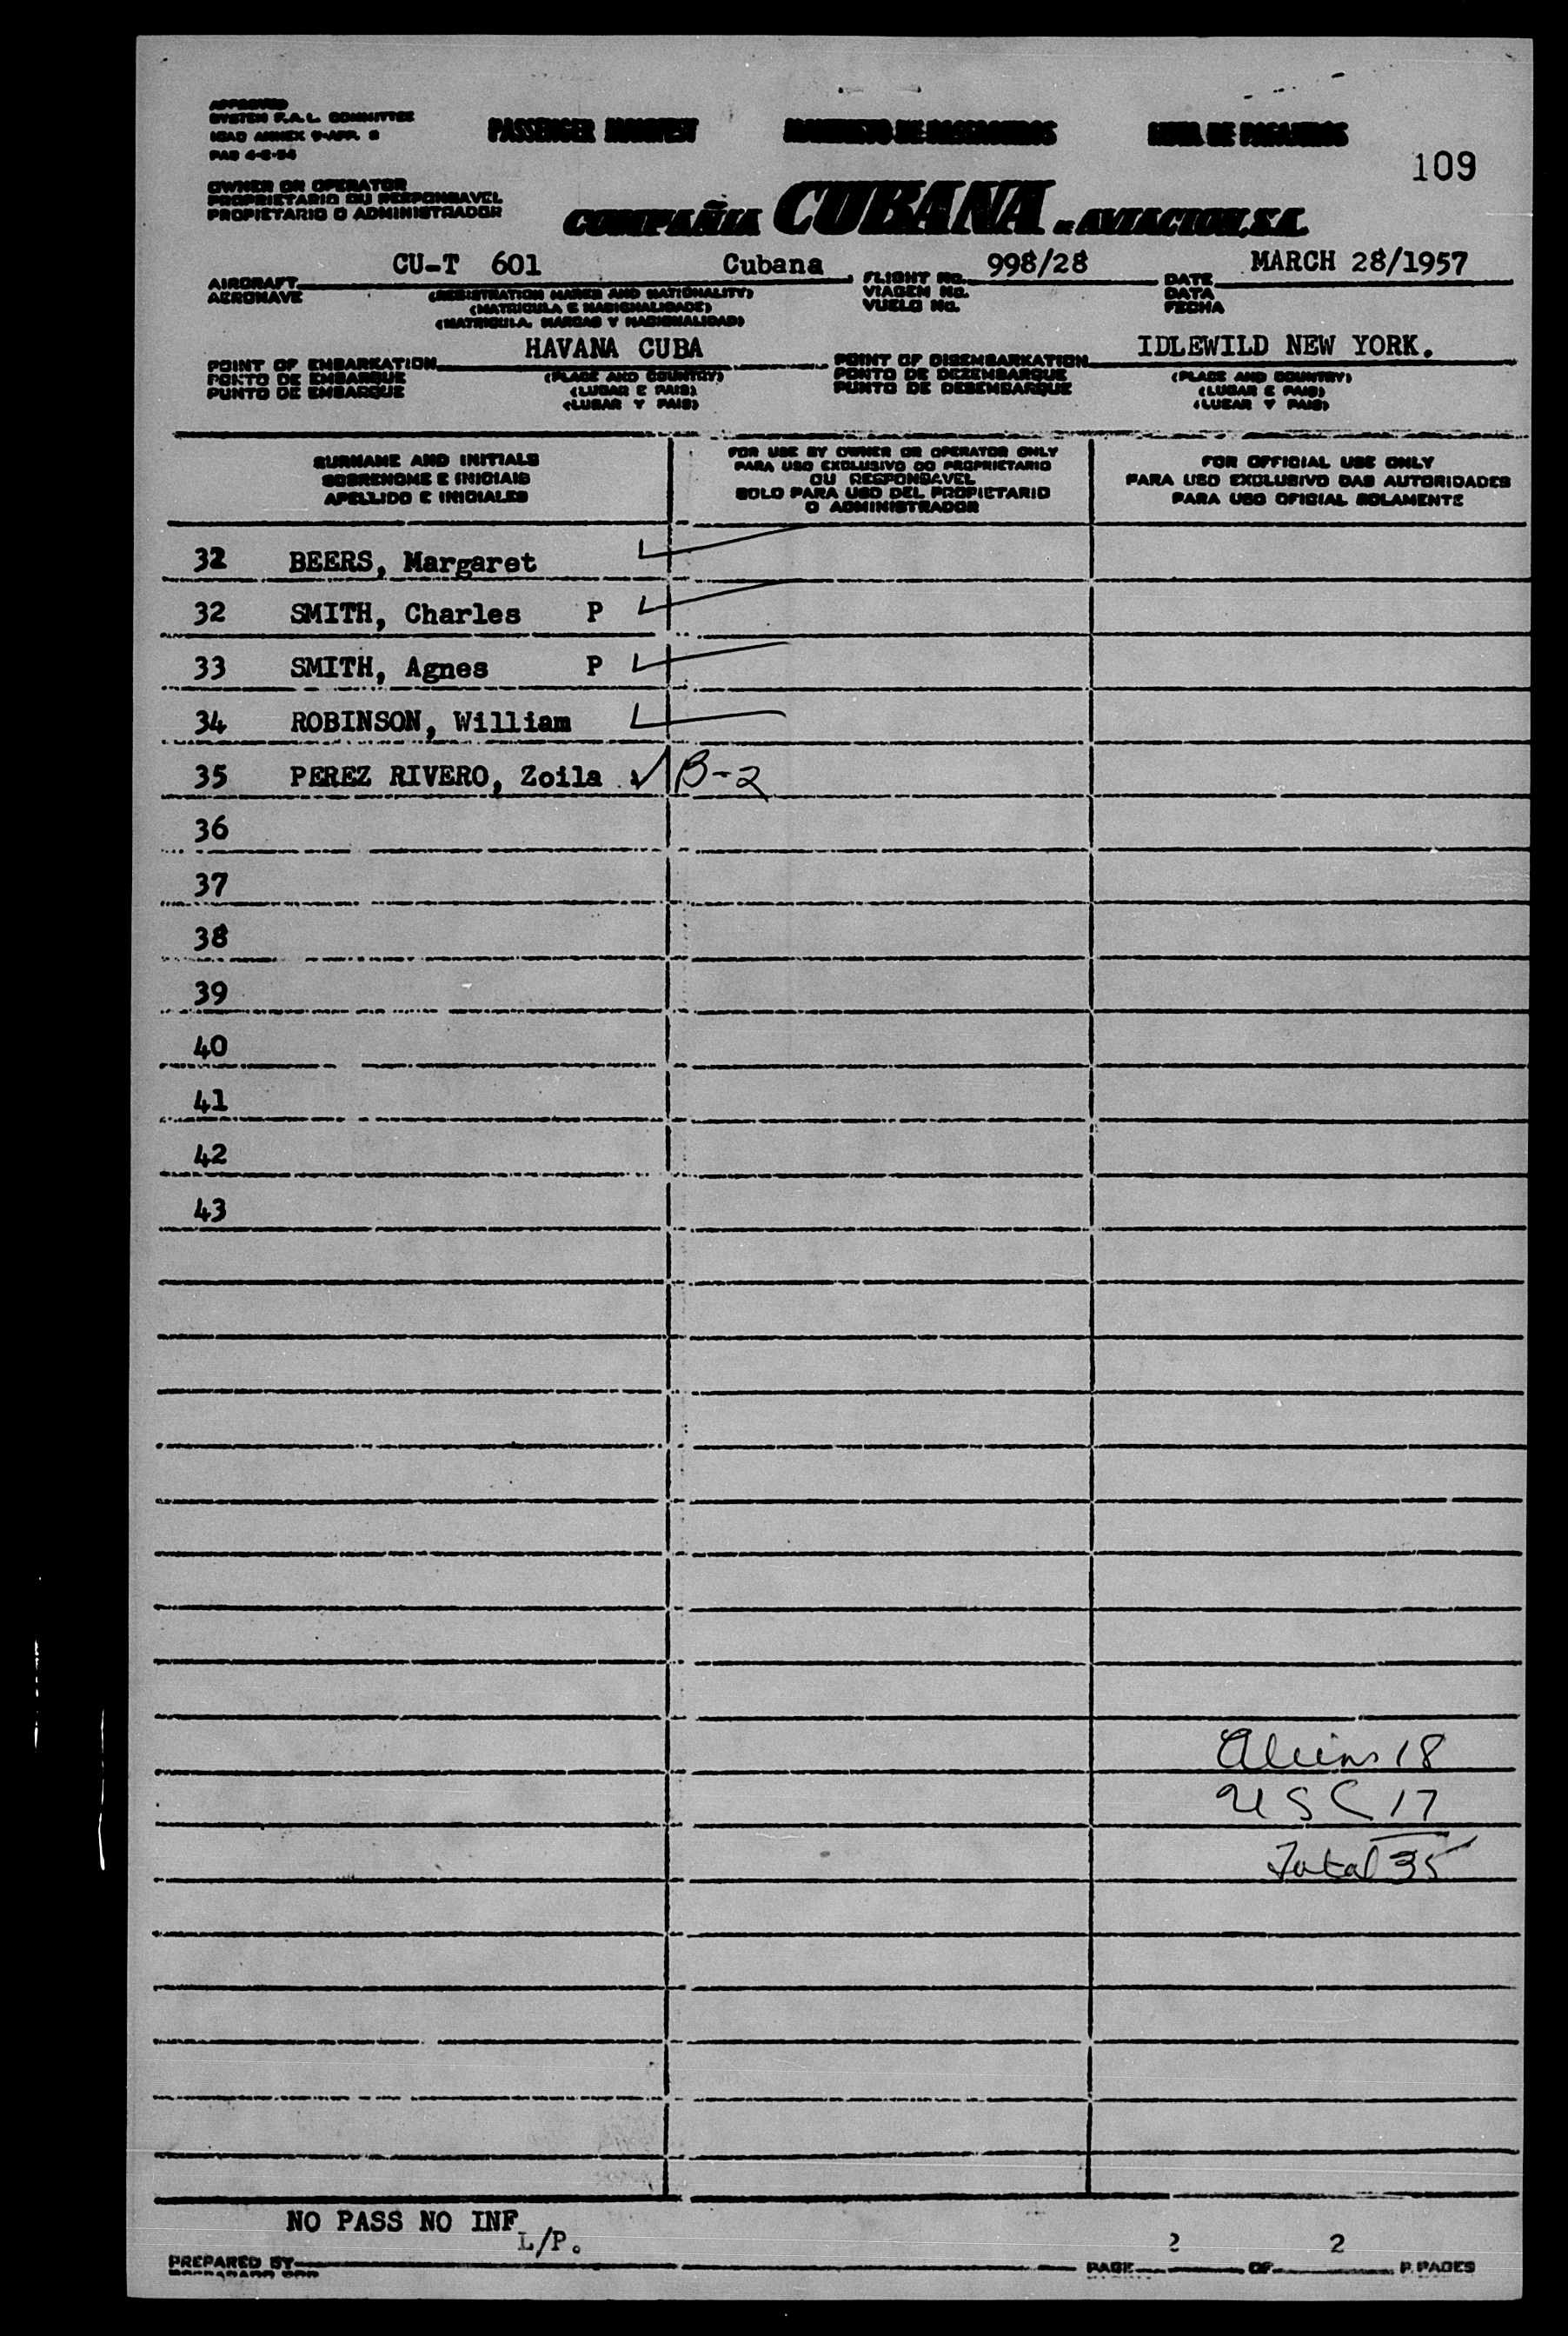 APPROVED
SYSTEM F.A.L. COMMITTEE
ICAO ANNEX 9-APP. 2
PAB 4-2-54
PASSENGER MANIFEST
MANIFESTO DE PASSAGEIROS
LISTA DE PASAJEROS
109
OWNER OR OPERATOR
PROPRIETARIO OU RESPONSAVEL
PROPIETARIO O ADMINISTRADOR
COMPAÑIA CUBANA DE AVIACION, S.A.
AIRCRAFT CU-T 601 Cubana FLIGHT No. 998/28 DATE MARCH 28/1957
AERONAVE (REGISTRATION MARKS AND NATIONALITY) VIAGEM No. DATA
(MATRICULA E NACIONALIDADE) VUELO No. FECHA
(MATRICULA, MARCAS Y NACIONALIDAD)
POINT OF EMBARKATION HAVANA CUBA POINT OF DISEMBARKATION IDLEWILD NEW YORK.
PONTO DE EMBARQUE (PLACE AND COUNTRY) PONTO DE DEZEMBARQUE (PLACE AND COUNTRY)
PUNTO DE EMBARQUE (LUGAR E PAIS) PUNTO DE DESEMBARQUE (LUGAR E PAIS)
(LUGAR Y PAIS) (LUGAR Y PAIS)
SURNAME AND INITIALS
SOBRENOME E INICIAIS
APELLIDO E INICIALES
FOR USE BY OWNER OR OPERATOR ONLY
PARA USO EXCLUSIVO DO PROPRIETARIO
OU RESPONSAVEL
SOLO PARA USO DEL PROPIETARIO
O ADMINISTRADOR
FOR OFFICIAL USE ONLY
PARA USO EXCLUSIVO DAS AUTORIDADES
PARA USO OFICIAL SOLAMENTE
32 BEERS, Margaret
32 SMITH, Charles P
33 SMITH, Agnes P
34 ROBINSON, William
35 PEREZ RIVERO, Zoila B-2
36
37
38
39
40
41
42
43
Aliens 18
USC 17
Total 35
NO PASS NO INF
L/P.
PREPARED BY PAGE 2 OF 2 P. PAGES